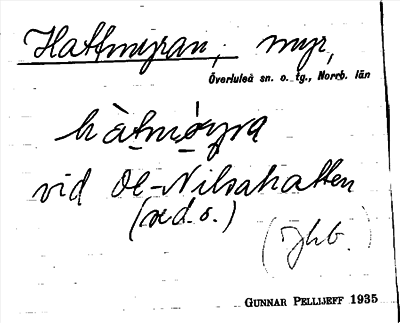 Hattmyran, myr,
Överluleå sn. o. tg., Norrb. län
vid Ol-Nilsahatten
(se d. o.)
GUNNAR PELLIJEFF 1935